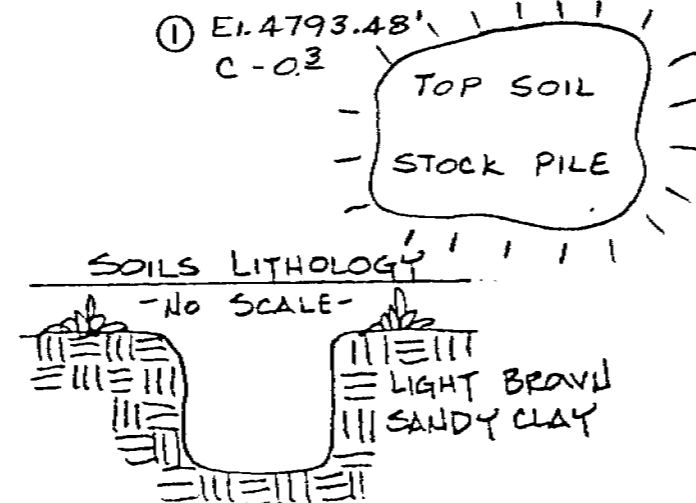 ① El. 4793.48'
C - 0.3
TOP SOIL
STOCK PILE
SOILS LITHOLOGY
- NO SCALE -
LIGHT BROWN
SANDY CLAY